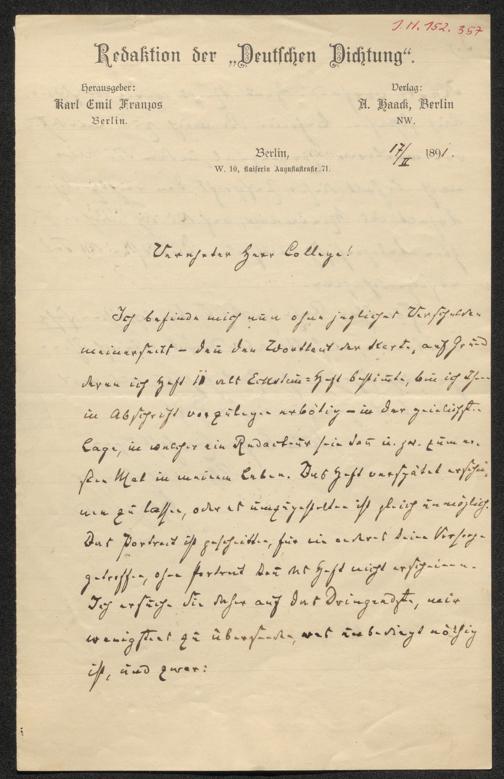 J.N. 152.357
Redaktion der „Deutschen Dichtung“.
Herausgeber:
Karl Emil Franzos
Berlin.
Verlag:
A. Haack, Berlin
NW.
Berlin, 17/II 1891.
W. 10, Kaiserin Augustastraße 71.
Verehrter Herr College!
Ich befinde mich nun ohne jegliches Verschulden
meinerseits – den Wortlaut der Karte, auf Grund
deren ich Heft 11 als Eckstein-Heft bestimmte, bin ich Ihnen
in Abschrift vorzulegen erbötig – in der peinlichsten
Lage, in welcher ein Redacteur sein kann u. zw. zum er-
sten Mal in meinem Leben. Das Heft verspätet erschei-
nen zu lassen, oder es umzugestalten ist gleich unmöglich.
Das Portrait ist geschnitten, für ein anderes keine Vorsorge
getroffen, ohne Portrait kann das Heft nicht erscheinen.
Ich ersuche Sie daher auf das Dringendste, mir
wenigstens zu übersenden, was unbedingt nöthig
ist, und zwar: